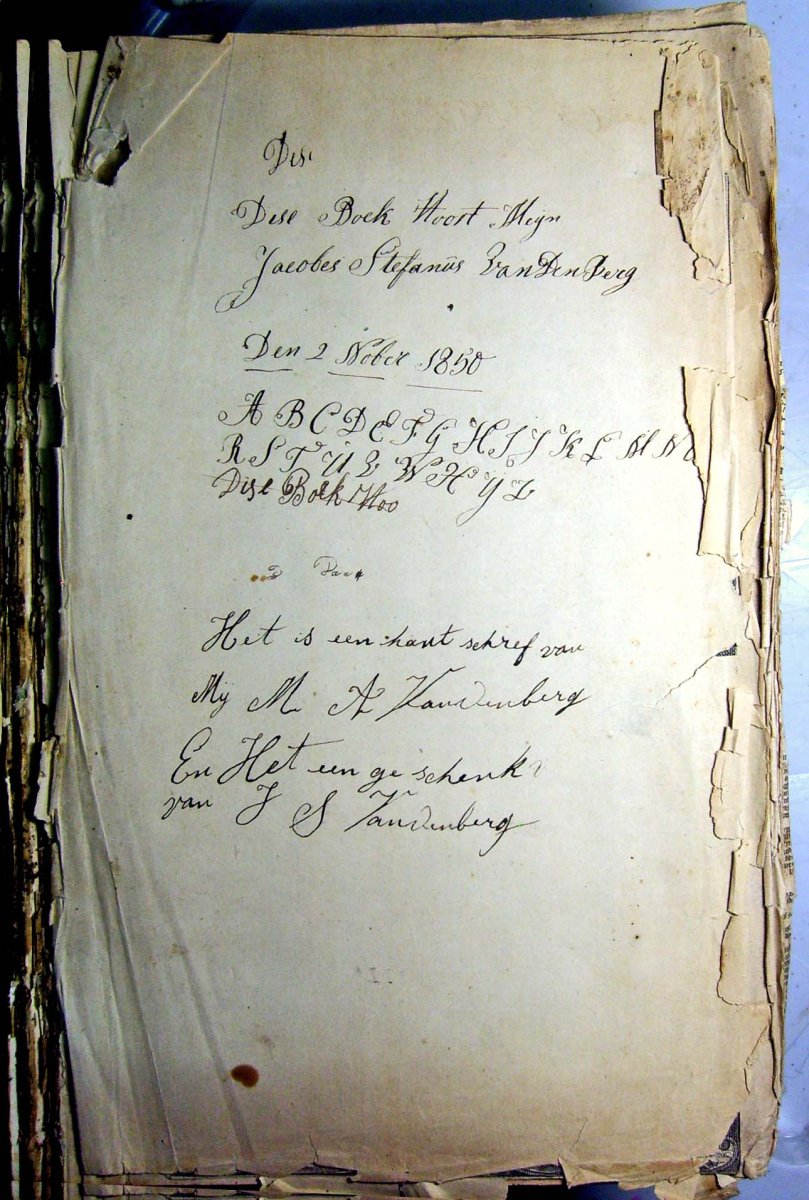 Dese
Dese Boek Hoort Meyn
Jacobes Stefanüs VanDenBerg
Den 2 Nober 1850
A B C D E F G H I J K L M N O
R S T U V W H Y Z
Dise Boek Hoo
Het is een hant schref van
Mij M A Vandenberg
En Het een ge schenk
van J S Vandenberg